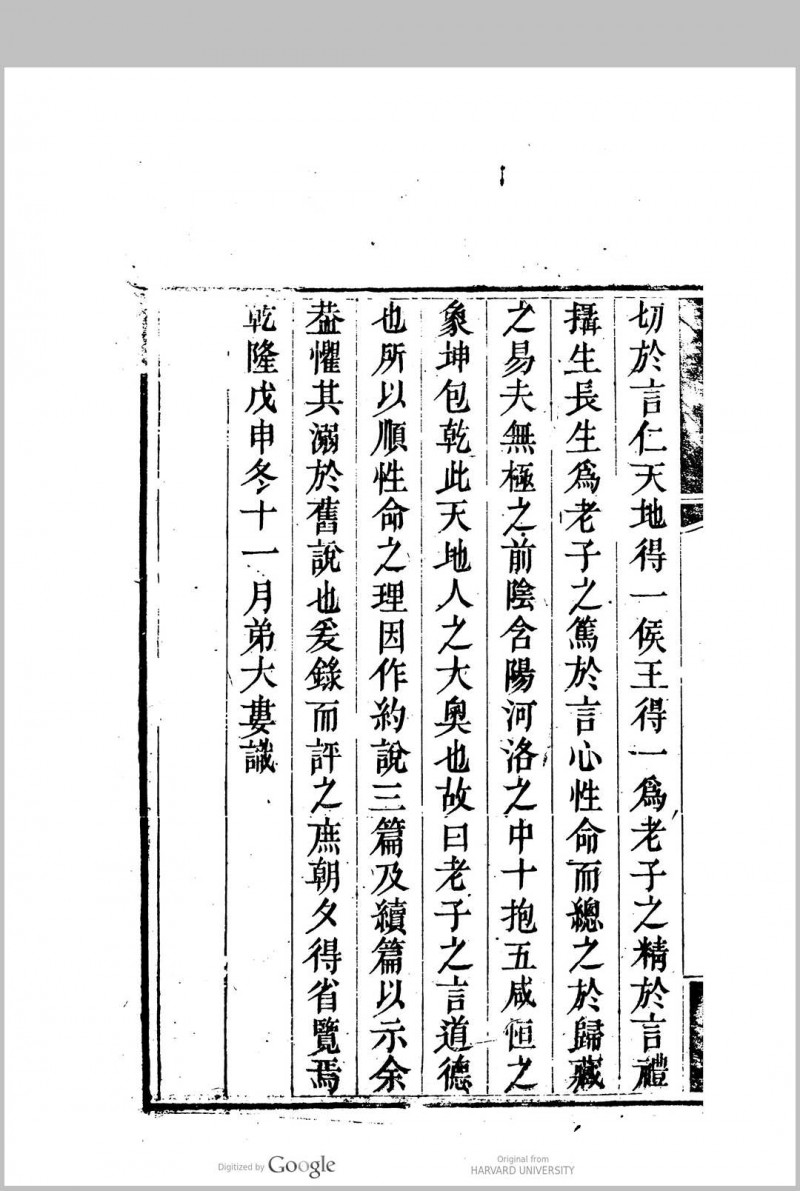 切於言仁天地得一侯王得一爲老子之精於言禮
攝生長生爲老子之篤於言心性命而總之於歸藏
之易夫無極之前陰含陽河洛之中十抱五咸恒之
象坤包乾此天地人之大奧也故曰老子之言道德
也所以順性命之理因作約說三篇及續篇以示余
葢懼其溺於舊說也爰錄而評之庶朝夕得省覽焉
乾隆戊申冬十一月弟大婁識
Digitized by Google
Original from
HARVARD UNIVERSITY